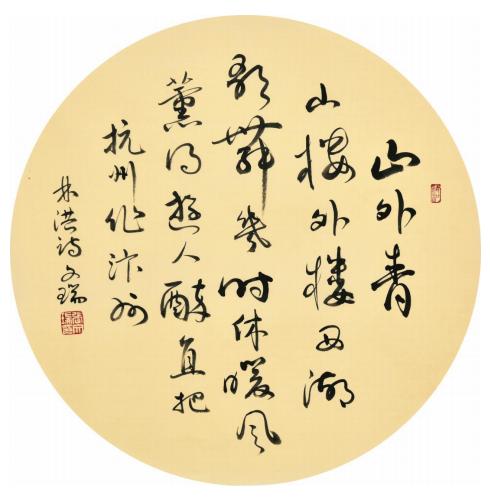 山外青
山樓外樓西湖
歌舞幾时休暖风
薰得遊人醉直把
杭州作汴州
林洪诗文瑞